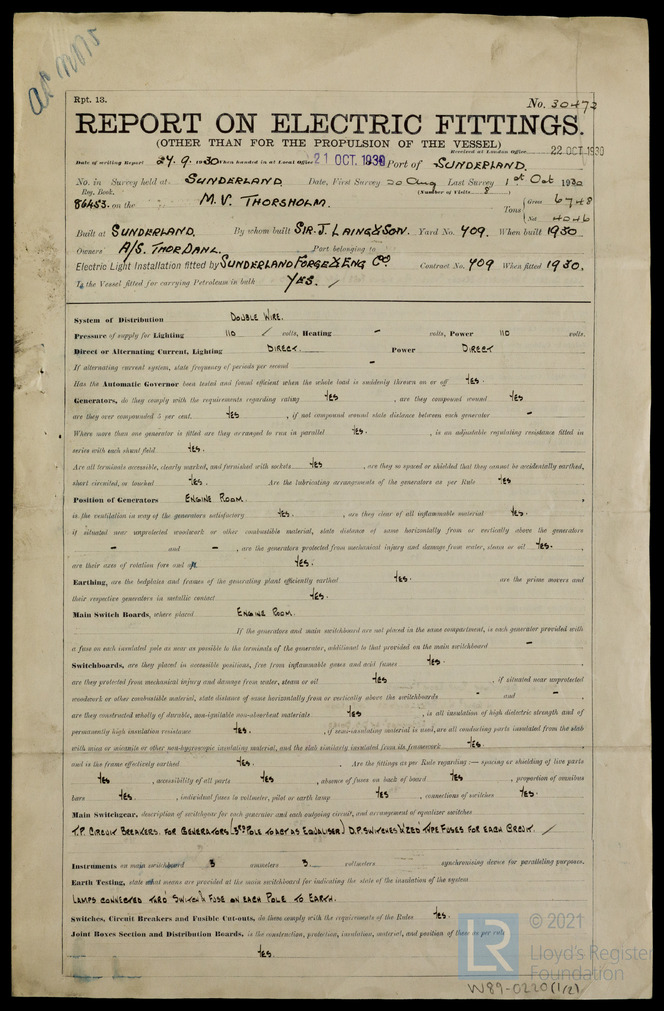 as now
Rpt. 13.
No. 30472
REPORT ON ELECTRIC FITTINGS.
(OTHER THAN FOR THE PROPULSION OF THE VESSEL)
Received at London Office 22 OCT 1930
Date of writing Report 24.9.1930 When handed in at Local Office 21 OCT. 1930 Port of SUNDERLAND.
No. in Survey held at SUNDERLAND Date, First Survey 20 Aug Last Survey 1st Oct 1930
Reg. Book. (Number of Visits 8
86453. on the M.V. THORSHOLM. Tons { Gross 6748
Net 4046
Built at SUNDERLAND. By whom built SIR. J. LAING & SON. Yard No. 409. When built 1930
Owners A/S. THOR DAHL. Port belonging to
Electric Light Installation fitted by SUNDERLAND FORGE & ENG Co. Contract No. 409 When fitted 1930.
Is the Vessel fitted for carrying Petroleum in bulk YES. /
System of Distribution DOUBLE WIRE.
Pressure of supply for Lighting 110 / volts, Heating - volts, Power 110 volts.
Direct or Alternating Current, Lighting DIRECT. Power DIRECT
If alternating current system, state frequency of periods per second -
Has the Automatic Governor been tested and found efficient when the whole load is suddenly thrown on or off YES.
Generators, do they comply with the requirements regarding rating YES , are they compound wound YES
are they over compounded 5 per cent. YES , if not compound wound state distance between each generator -
Where more than one generator is fitted are they arranged to run in parallel YES. , is an adjustable regulating resistance fitted in
series with each shunt field YES.
Are all terminals accessible, clearly marked, and furnished with sockets YES , are they so spaced or shielded that they cannot be accidentally earthed,
short circuited, or touched YES. Are the lubricating arrangements of the generators as per Rule YES
Position of Generators ENGINE ROOM.
is the ventilation in way of the generators satisfactory YES. , are they clear of all inflammable material YES.
if situated near unprotected woodwork or other combustible material, state distance of same horizontally from or vertically above the generators
- and - , are the generators protected from mechanical injury and damage from water, steam or oil YES. ,
are their axes of rotation fore and aft YES.
Earthing, are the bedplates and frames of the generating plant efficiently earthed YES. are the prime movers and
their respective generators in metallic contact YES.
Main Switch Boards, where placed ENGINE ROOM.
If the generators and main switchboard are not placed in the same compartment, is each generator provided with
a fuse on each insulated pole as near as possible to the terminals of the generator, additional to that provided on the main switchboard -
Switchboards, are they placed in accessible positions, free from inflammable gases and acid fumes YES.
are they protected from mechanical injury and damage from water, steam or oil YES , if situated near unprotected
woodwork or other combustible material, state distance of same horizontally from or vertically above the switchboards - and -
are they constructed wholly of durable, non-ignitable non-absorbent materials YES , is all insulation of high dielectric strength and of
permanently high insulation resistance YES. , if semi-insulating material is used, are all conducting parts insulated from the slab
with mica or micanite or other non-hygroscopic insulating material, and the slab similarly insulated from its framework YES.
and is the frame effectively earthed YES. Are the fittings as per Rule regarding:— spacing or shielding of live parts
YES , accessibility of all parts YES , absence of fuses on back of board YES , proportion of omnibus
bars YES. , individual fuses to voltmeter, pilot or earth lamp YES , connections of switches YES.
Main Switchgear, description of switchgear for each generator and each outgoing circuit, and arrangement of equalizer switches
T.P. CIRCUIT BREAKERS. FOR GENERATORS (3RD POLE TO ACT AS EQUALISER) D.P. SWITCHES & 'ZED' TYPE FUSES FOR EACH CIRCUIT. /
Instruments on main switchboard 3 ammeters 3. voltmeters synchronising device for paralleling purposes.
Earth Testing, state what means are provided at the main switchboard for indicating the state of the insulation of the system
LAMPS CONNECTED THRO' SWITCH & FUSE ON EACH POLE TO EARTH.
Switches, Circuit Breakers and Fusible Cut-outs, do these comply with the requirements of the Rules YES.
Joint Boxes Section and Distribution Boards, is the construction, protection, insulation, material, and position of these as per rule
YES.
© 2021
LR
Lloyd's Register
Foundation
W89-0220(1/2)